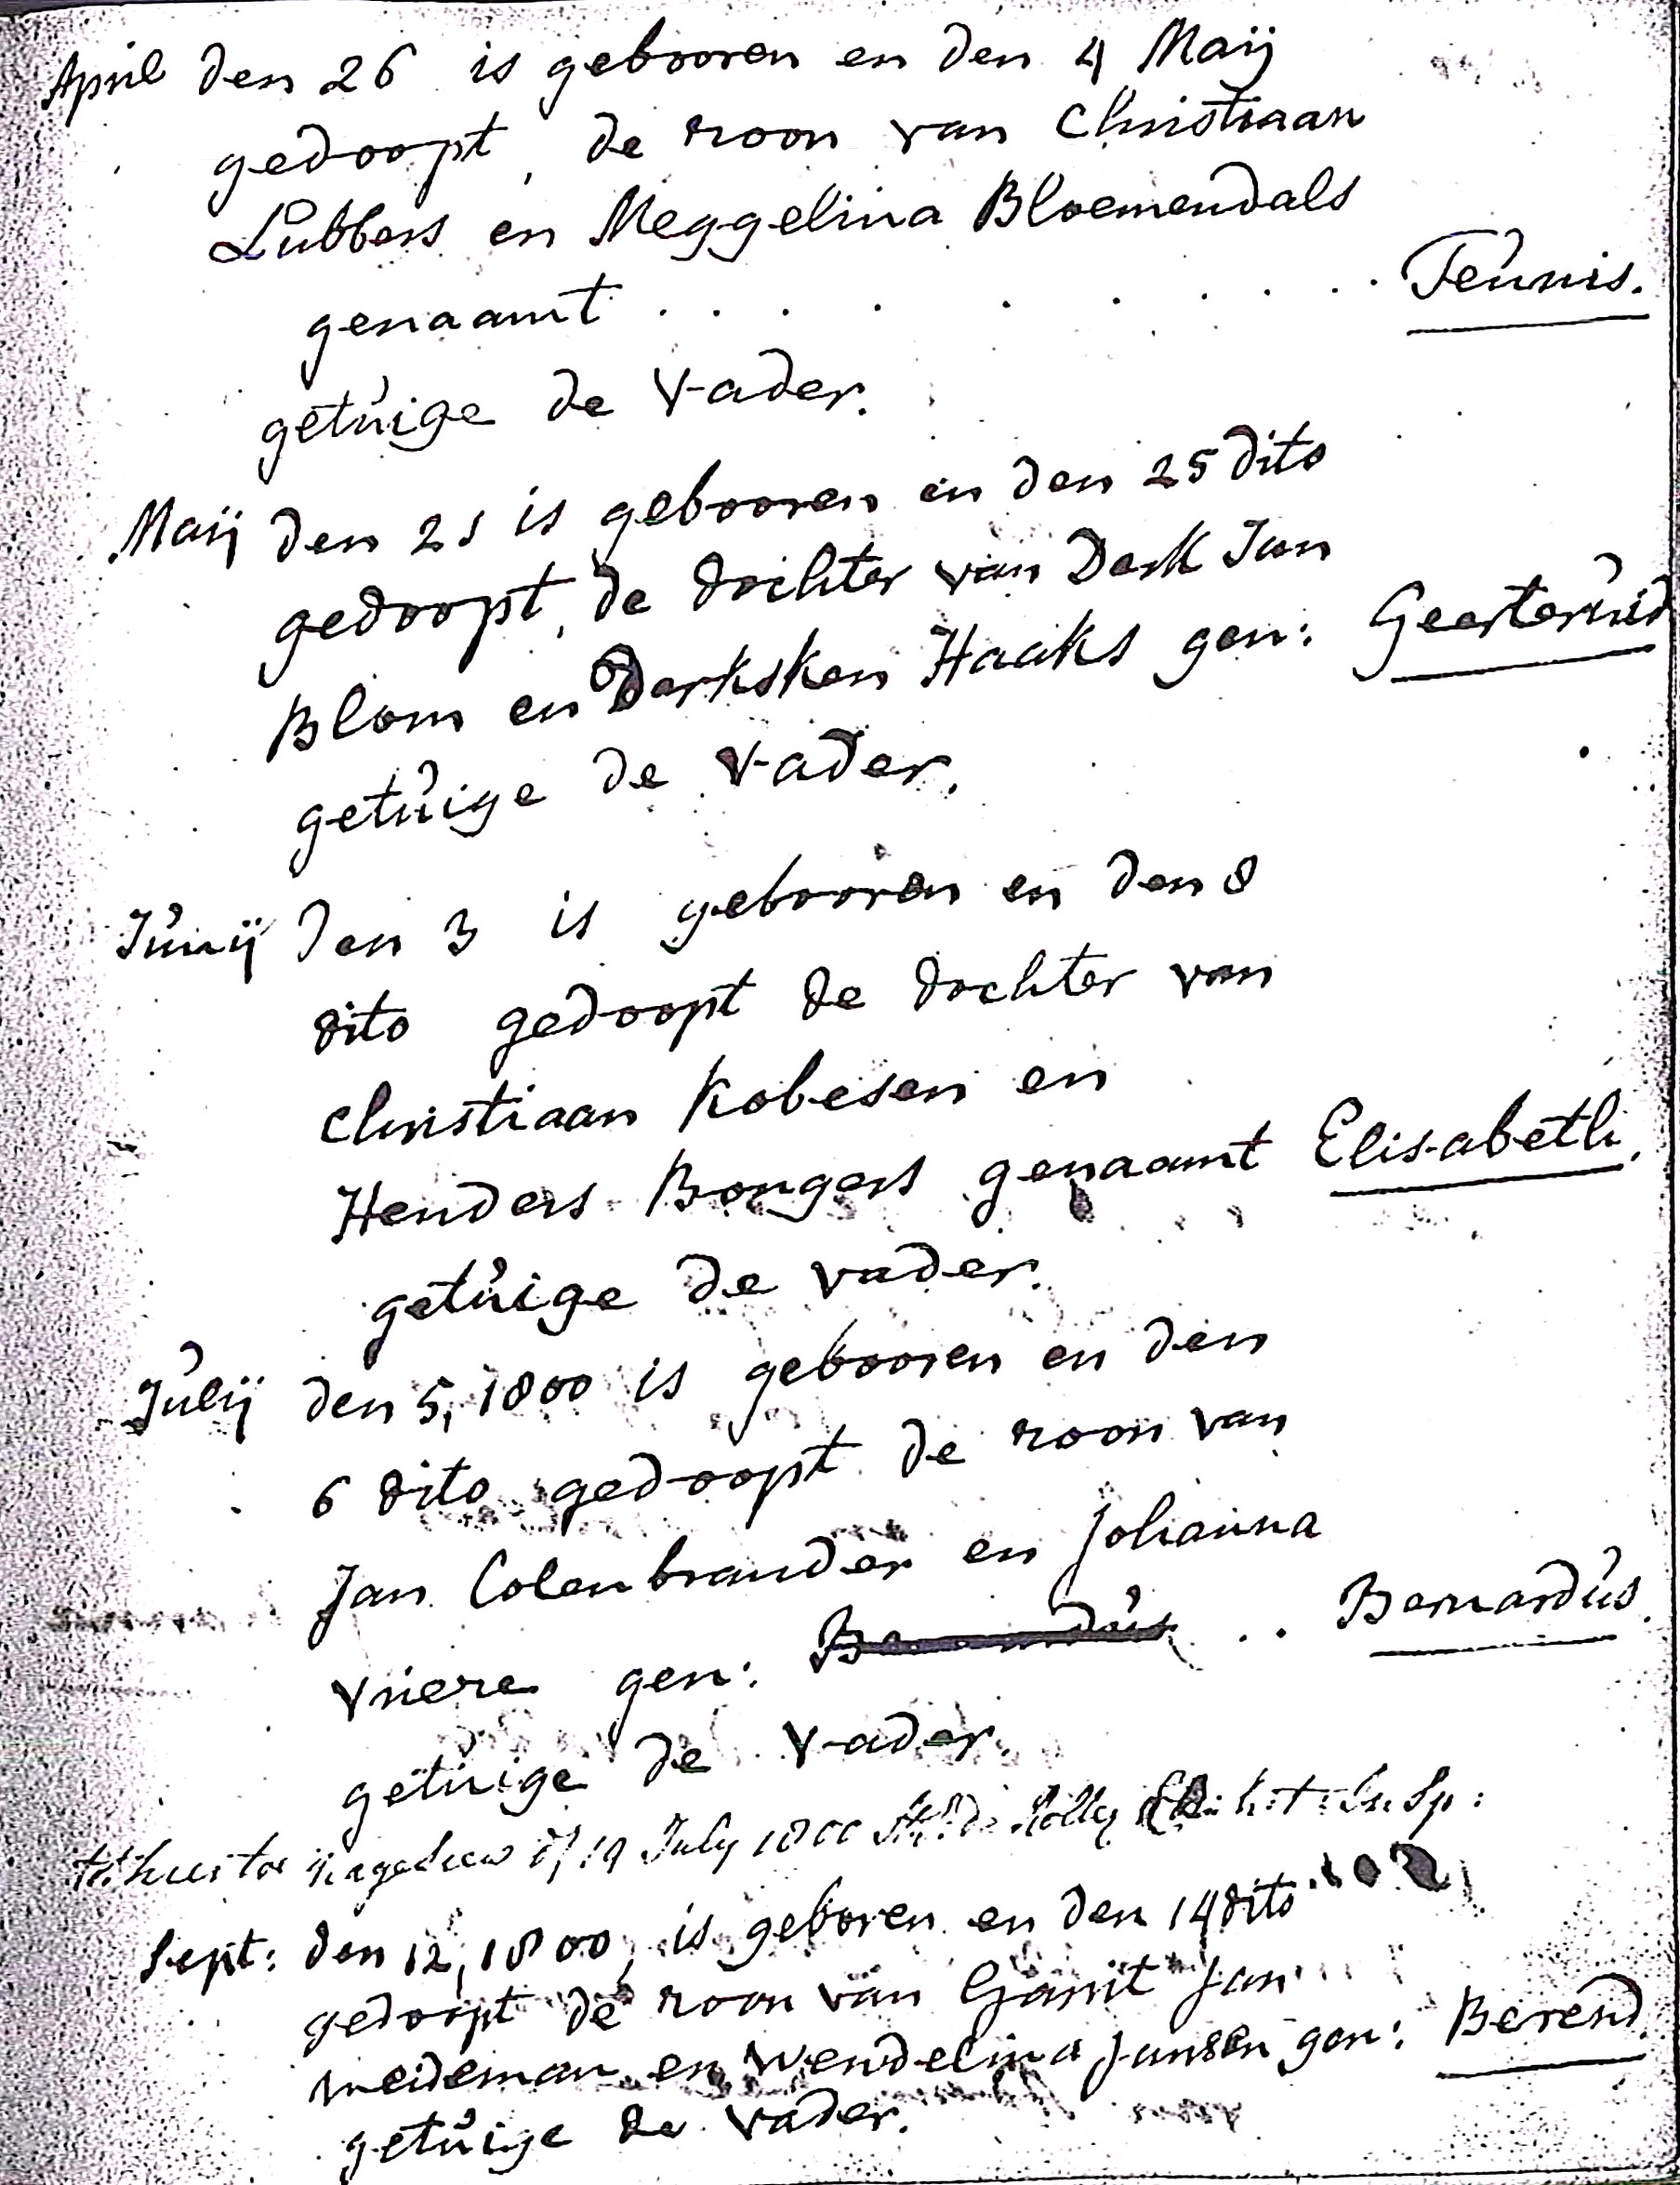 April den 26 is gebooren en den 4 Maij
gedoopt, de zoon van Christiaan
Lubbers en Meggelina Bloemendals
genaamt . . . . . . . . . . Teunis.
getuige de Vader.
Maij den 21 is gebooren en den 25 dito
gedoopt, de dochter van Derk Jan
Blom en Derksken Haaks gen: Geerteruid
getuige de Vader.
Junij den 3 is gebooren en den 8
dito gedoopt de dochter van
Christiaan Kobesen en
Henders Bongers genaamt Elisabeth.
getuige de vader.
Julij den 5, 1800 is gebooren en den
6 dito gedoopt de zoon van
Jan Colenbrander en Johanna
Vriere gen: Bernardus . . Bernardus.
getuige de Vader.
19 July 1800
Sept: den 12, 1800, is geboren en den 14 dito
gedoopt de zoon van Garrit Jan
Weideman en Wendelina Jansen gen: Berend.
getuige de Vader.